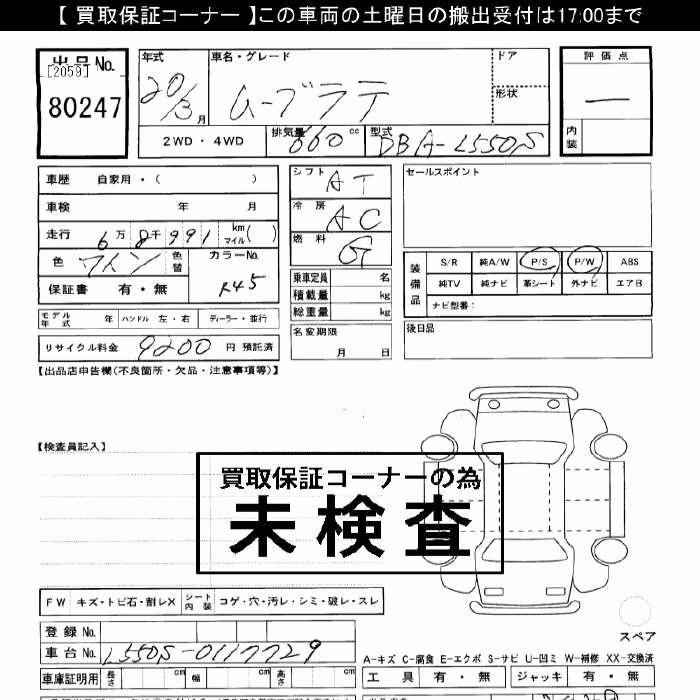 【 買取保証コーナー 】この車両の土曜日の搬出受付は17:00まで
出品No.
[2059]
80247
年式
20/3月
車名・グレード
ムーブラテ
ドア
形状
2WD ・ 4WD
排気量 660 cc
型式 DBA-L550S
評価点
―
内装
車歴 自家用・( )
車検 年 月
走行 6万8千991 km マイル( )
色 ワイン 色替
カラーNo. R45
保証書 有・無
モデル年式 年 ハンドル 左・右 ディーラー・並行
リサイクル料金 9200 円 預託済
シフト AT
冷房 AC
燃料 G
乗車定員 名
積載量 kg
総重量 kg
名変期限
月 日
セールスポイント
装備品
S/R 純A/W P/S P/W ABS
純TV 純ナビ 革シート 外ナビ エアB
ナビ型番:
後日品
【出品店申告欄(不良箇所・欠品・注意事項等)】
【検査員記入】
買取保証コーナーの為
未検査
FW キズ・トビ石・割レX シート内装 コゲ・穴・汚レ・シミ・破レ・スレ
スペア
登録No.
車台No. L550S-0117729
車庫証明用 長さ cm 幅 cm 高さ cm
A-キズ C-腐食 E-エクボ S-サビ U-凹ミ W-補修 XX-交換済
工具 有・無 ジャッキ 有・無